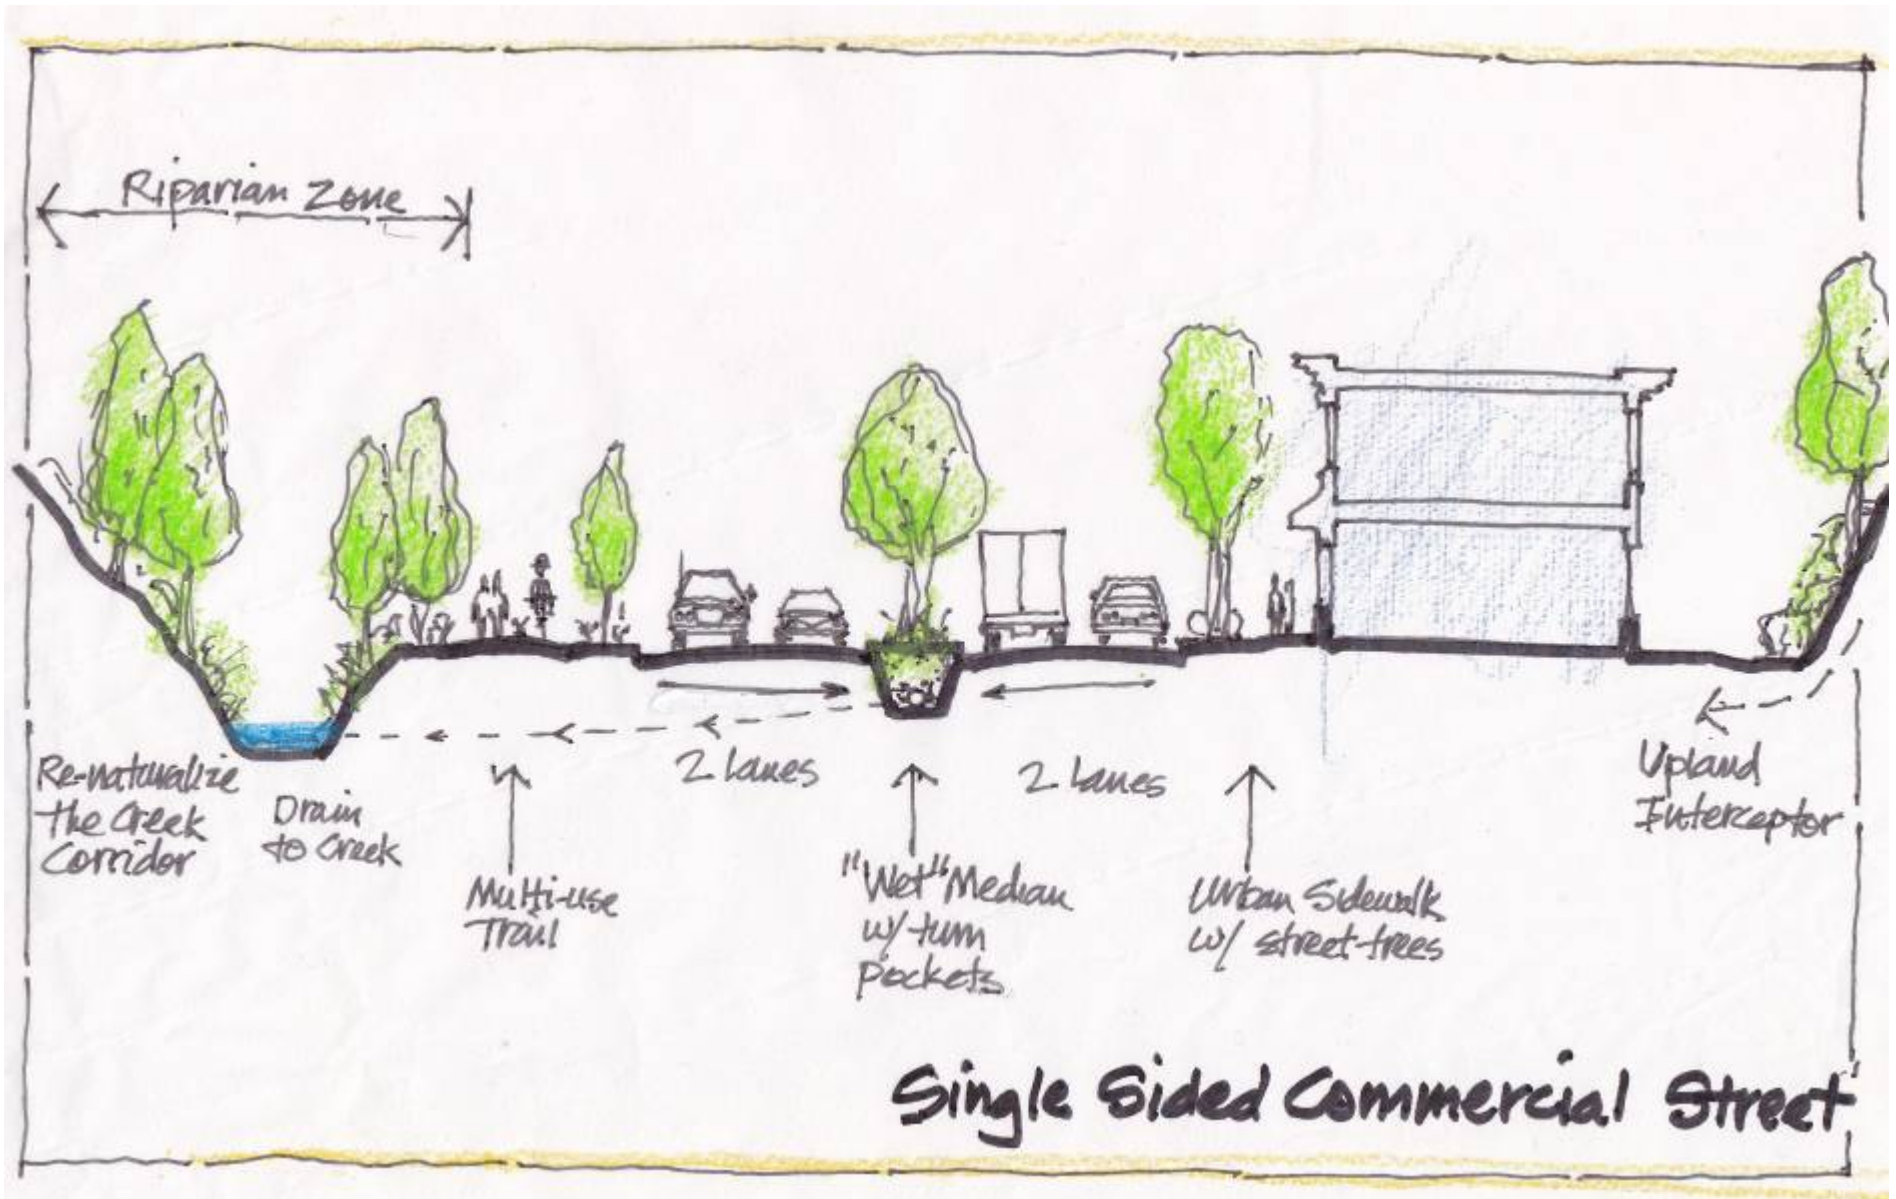 Riparian Zone
Re-naturalize
the Creek
Corridor
Drain
to Creek
Multi-use
Trail
2 lanes
"Wet" Median
w/ turn
pockets
2 lanes
Urban Sidewalk
w/ street-trees
Upland
Interceptor
Single Sided Commercial Street